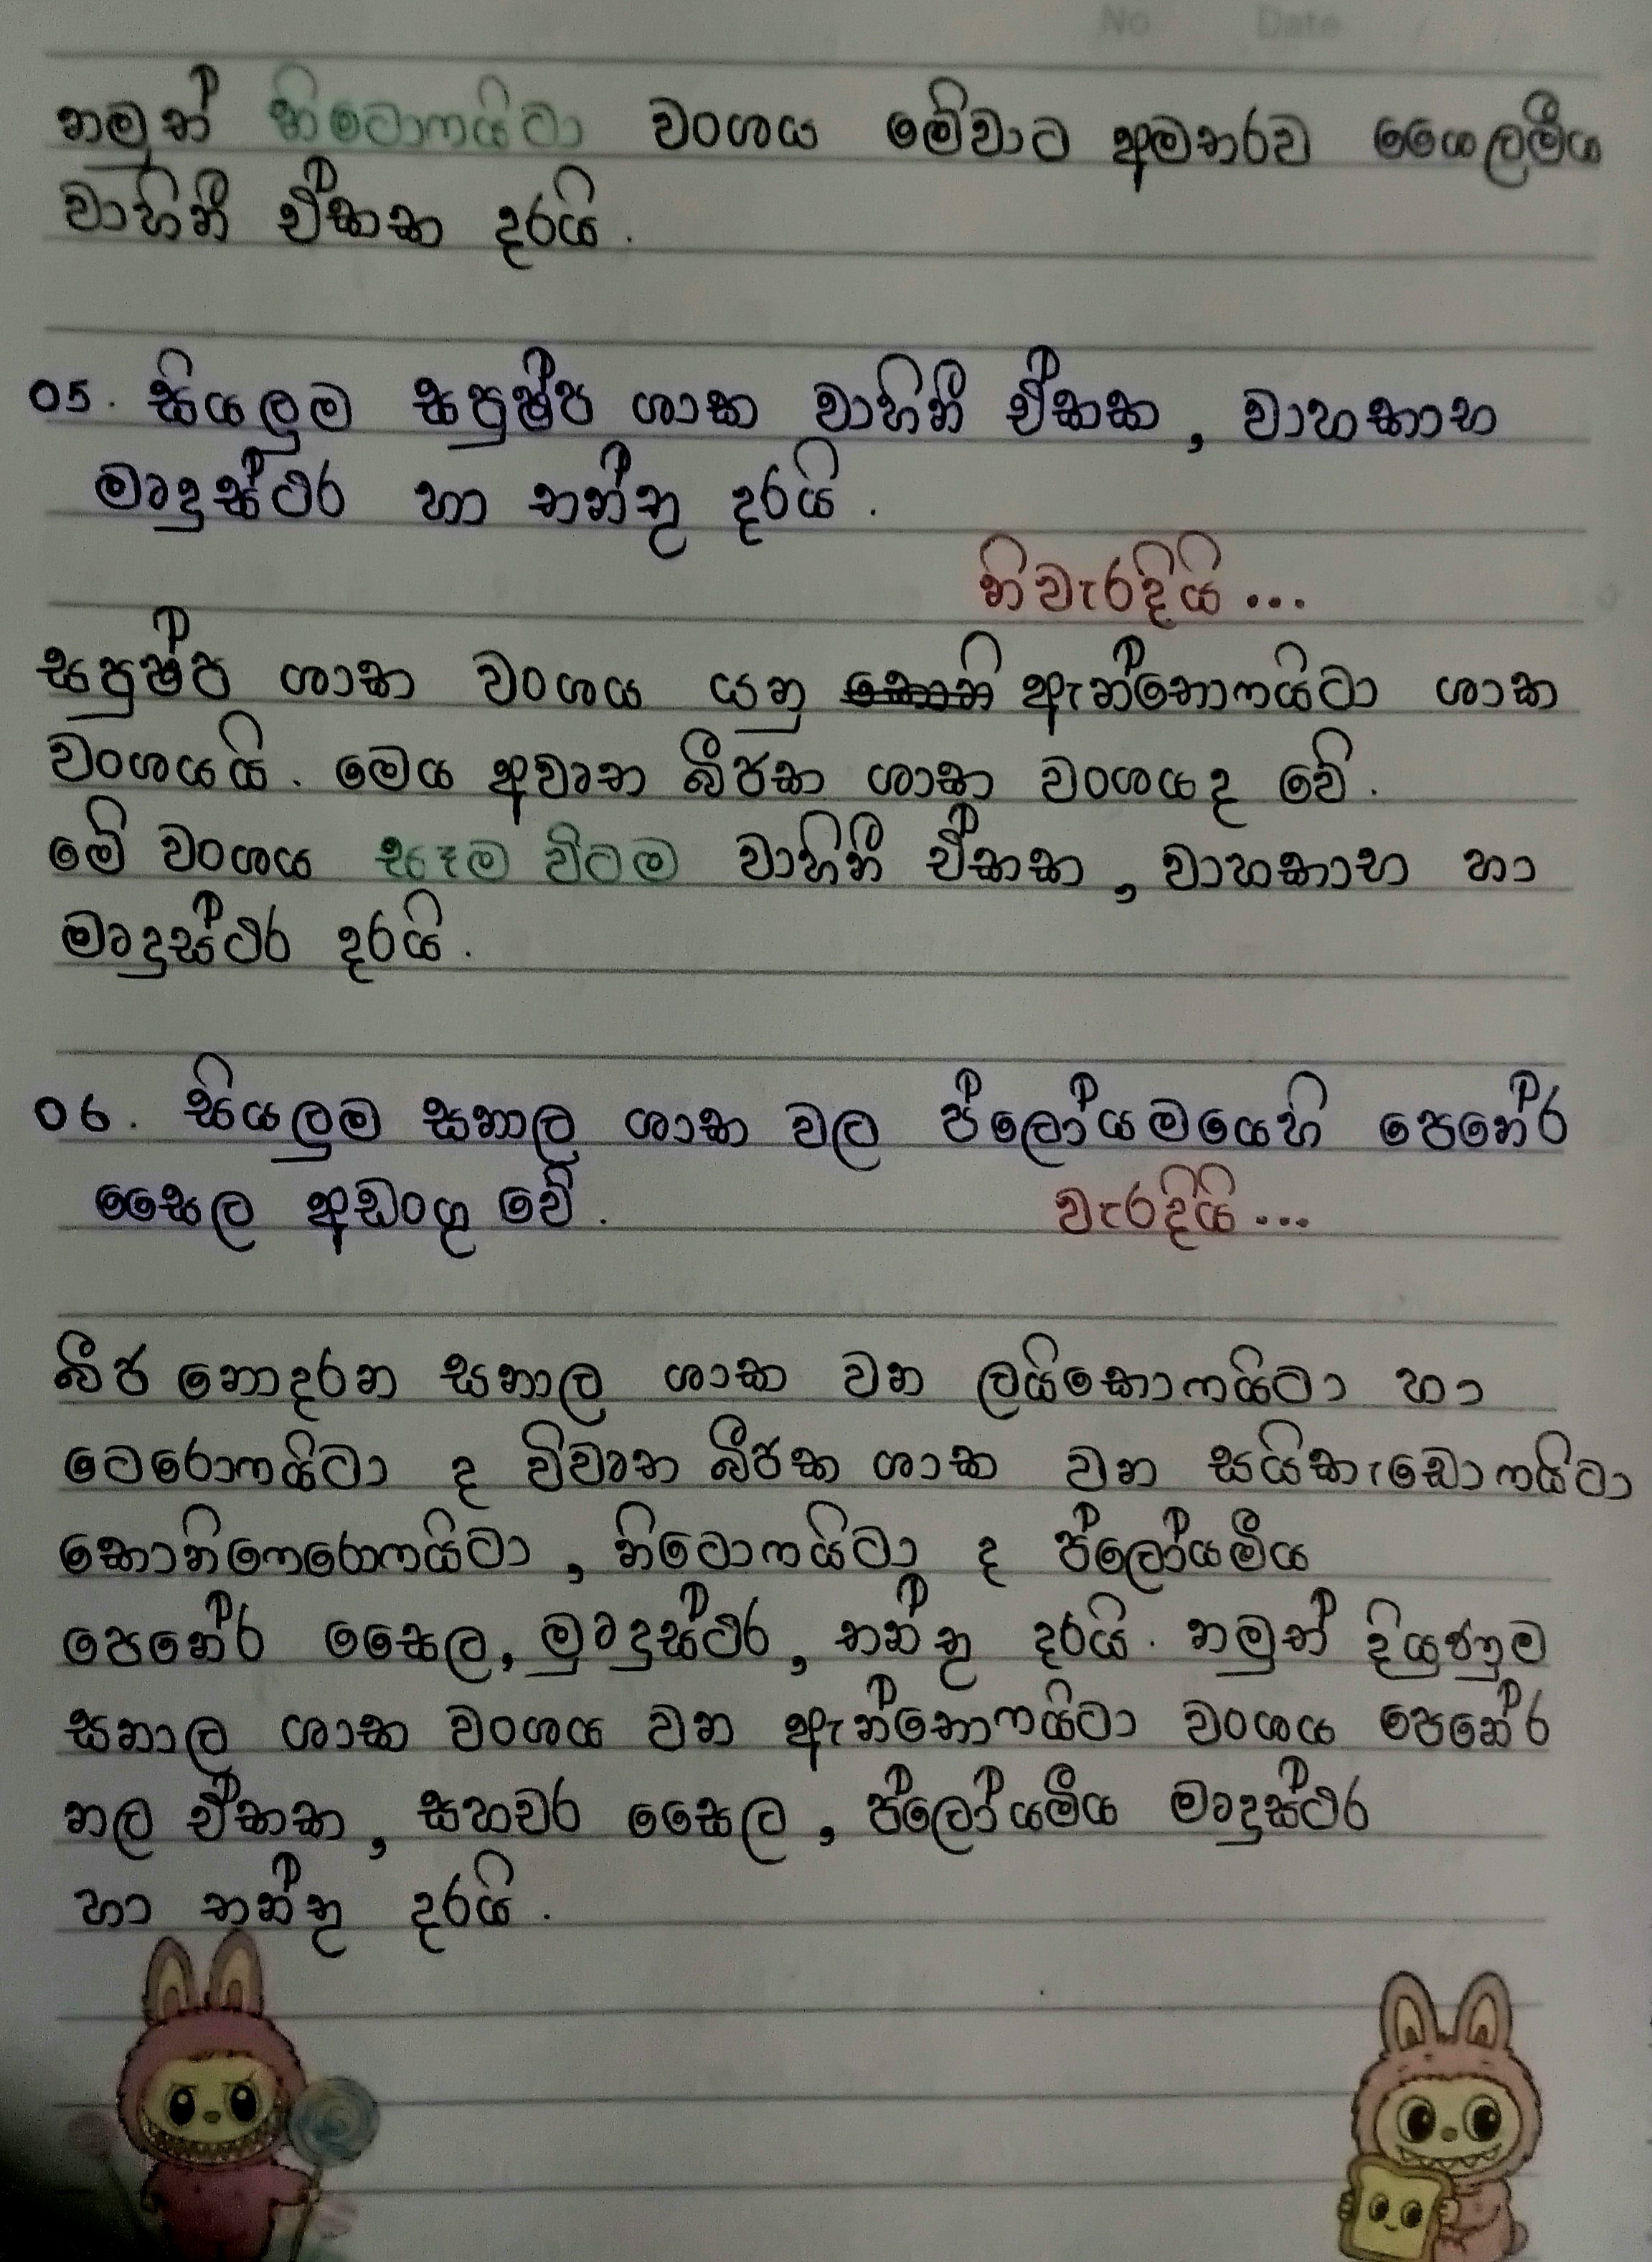 No Date
නමුත් නිටොෆයිටා වංශය මේවාට අමතරව ශෛලමීය
වාහිනී ඒකක දරයි.
05. සියලුම සපුෂ්ප ශාක වාහිනී ඒකක, වාහකාභ
මෘදුස්ථර හා තන්තු දරයි.
නිවැරදියි...
සපුෂ්ප ශාක වංශය යනු ඇන්තොෆයිටා ශාක
වංශයයි. මෙය අවෘත බීජක ශාක වංශයද වේ.
මේ වංශය සෑම විටම වාහිනී ඒකක, වාහකාභ හා
මෘදුස්ථර දරයි.
06. සියලුම සනාල ශාක වල ප්ලෝයමයෙහි පෙනේර
සෛල අඩංගු වේ.
වැරදියි...
බීජ නොදරන සනාල ශාක වන ලයිකොෆයිටා හා
ටෙරොෆයිටා ද විවෘත බීජක ශාක වන සයිකැඩොෆයිටා
කොනිෆෙරොෆයිටා, නිටොෆයිටා ද ප්ලෝයමීය
පෙනේර සෛල, මුෘදුස්ථර, තන්තු දරයි. නමුත් දියුණුම
සනාල ශාක වංශය වන ඇන්තොෆයිටා වංශය පෙනේර
නල ඒකක, සහචර සෛල, ප්ලෝයමීය මෘදුස්ථර
හා තන්තු දරයි.